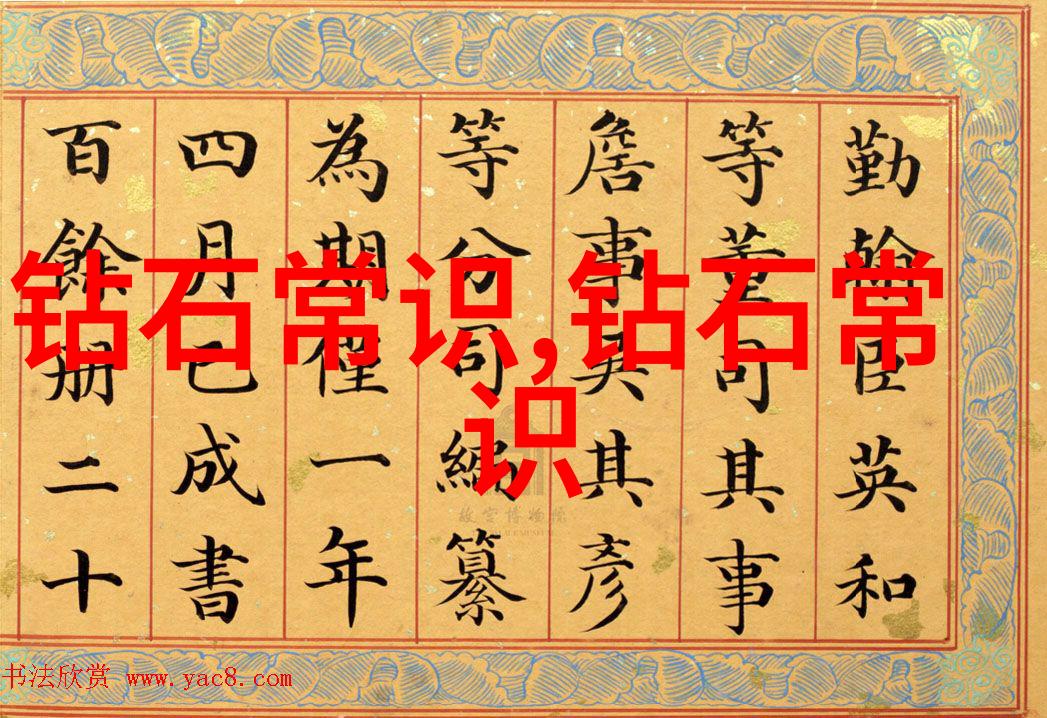 勤翰臣英和
等董司其事
詹事吳其彥
等分司編纂
為期僅一年
四月已成書
百餘冊二十
钻石常识,钻石常
识
故宫博物院
书法欣赏 www.yac8.com